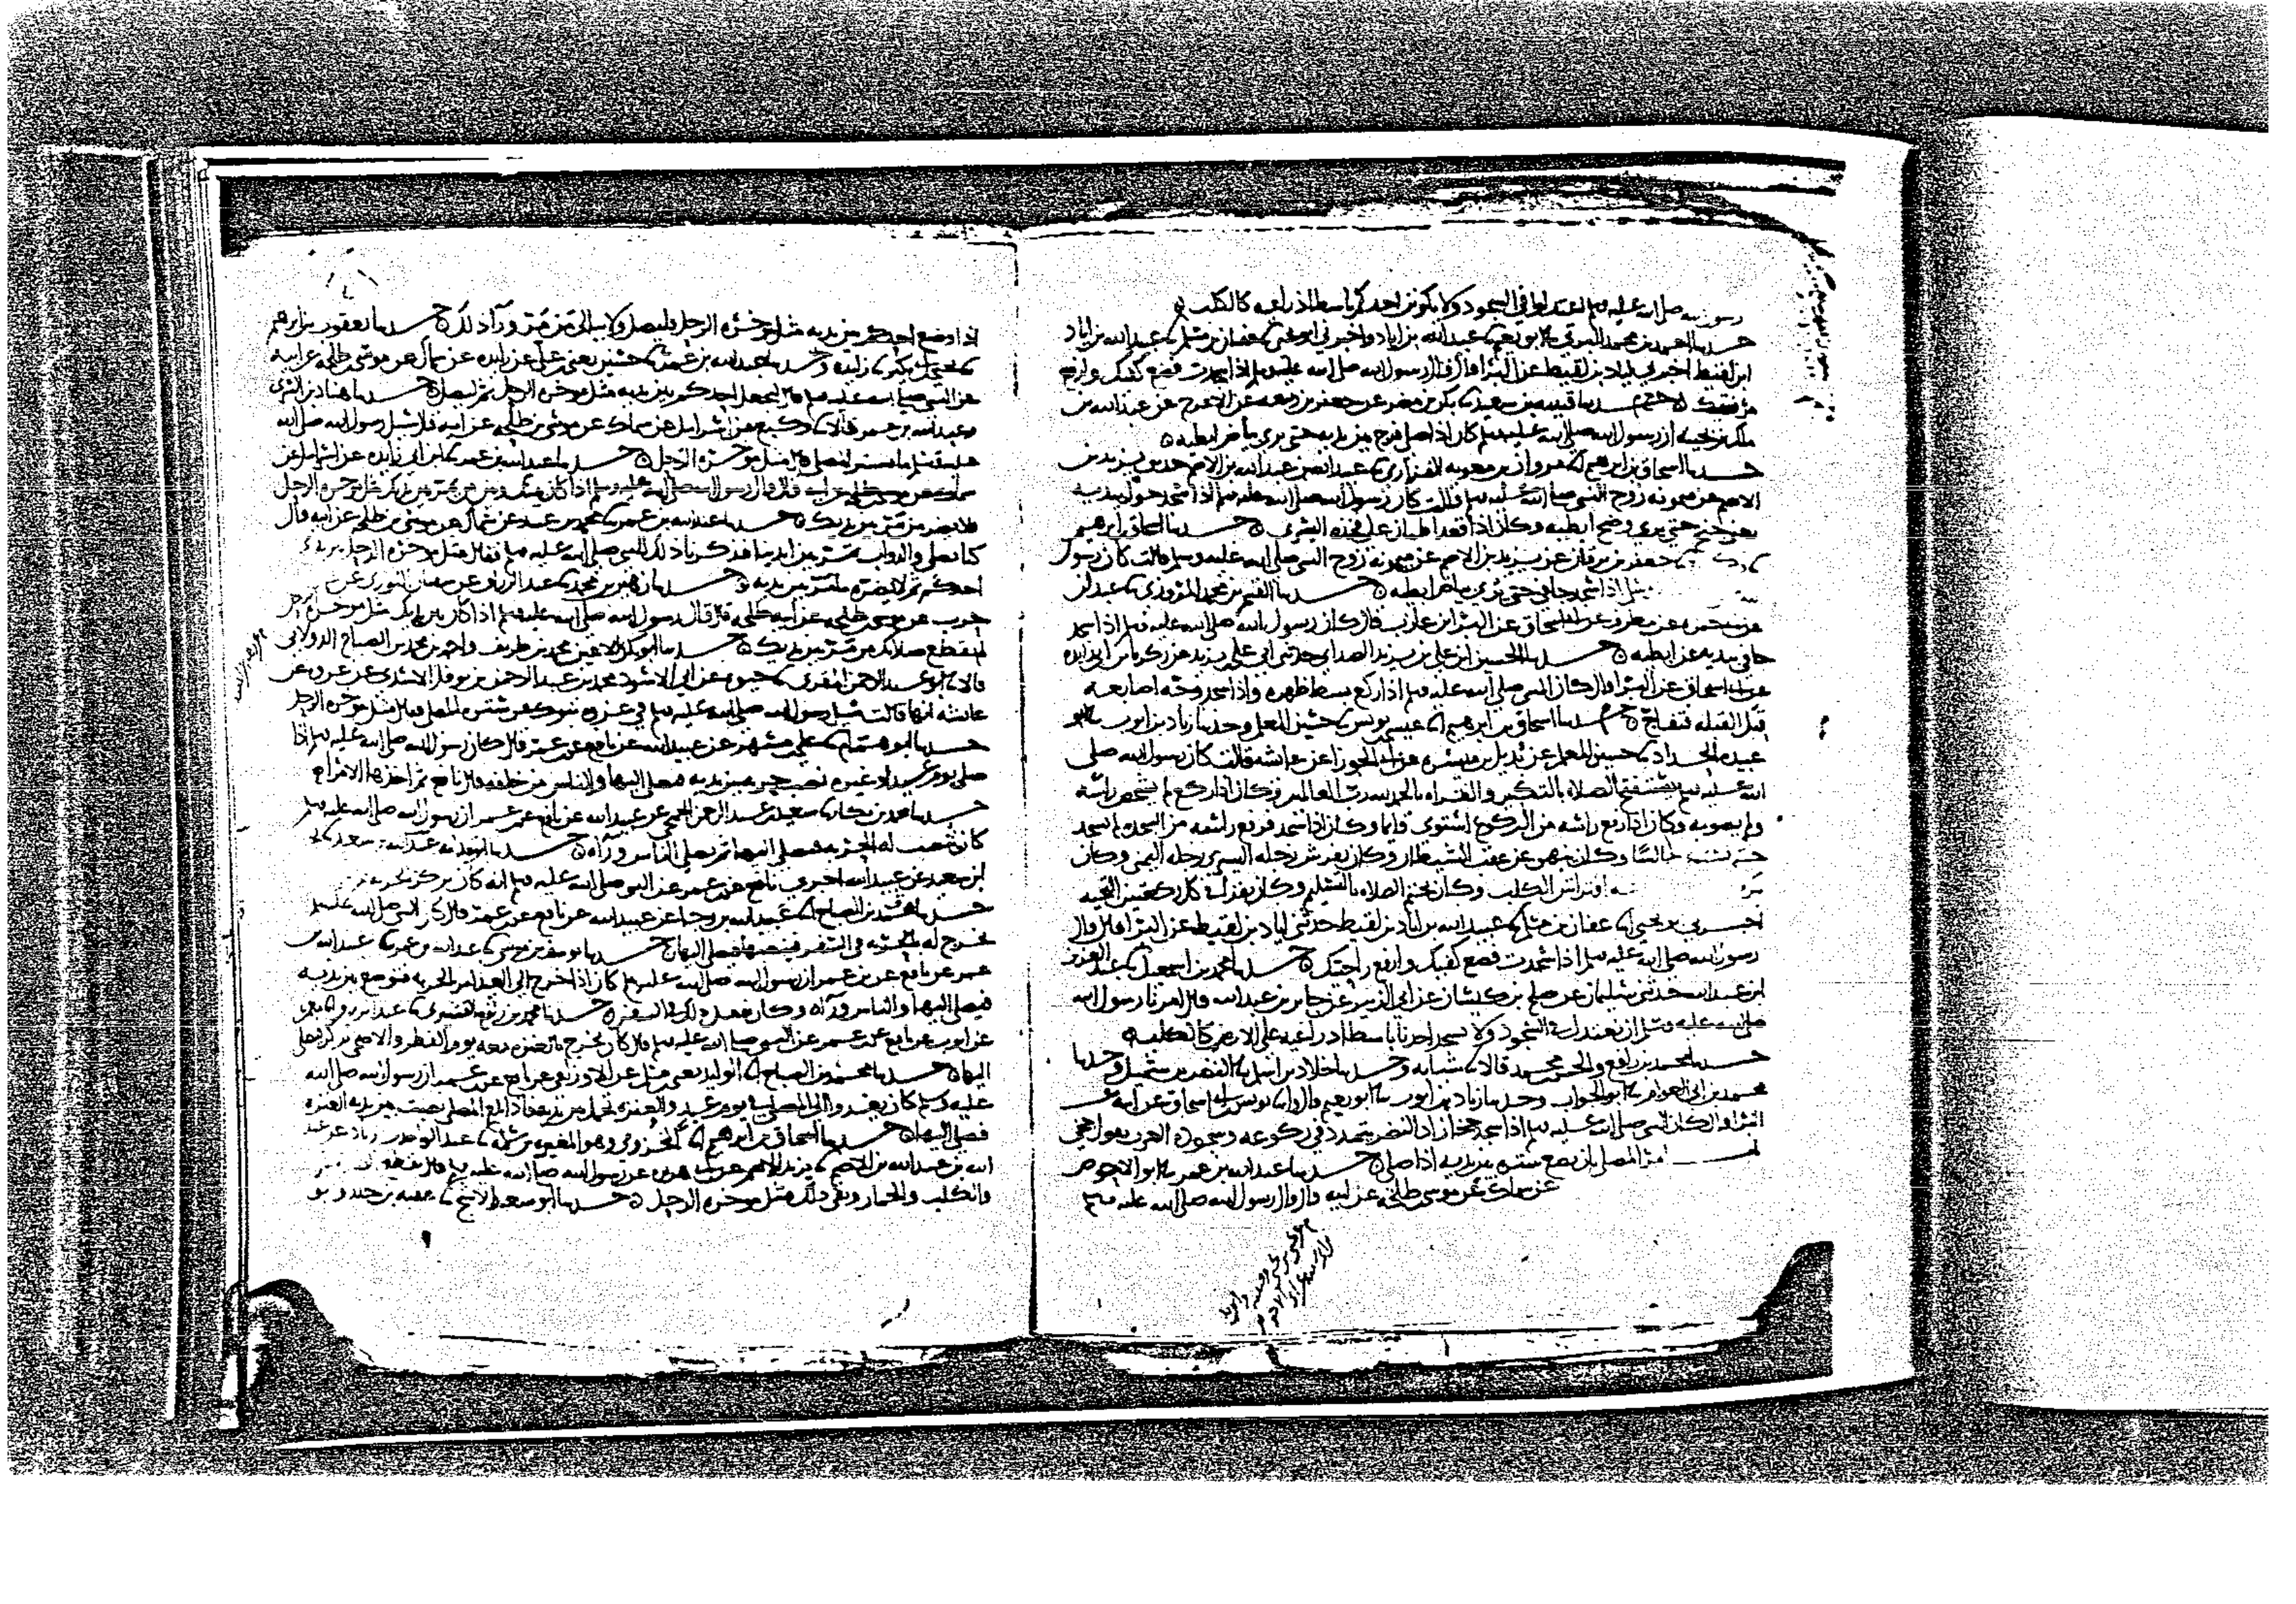 رسول الله صلى الله عليه وسلم اعتدلوا في السجود ولا يكونن احدكم باسط ذراعيه كالكلب
حدثنا احمد بن محمد البرتي ابو نعيم عبيد الله بن اياد واخبرني ابو يحيى عفان بن مسلم عبيد الله بن اياد
ابن لقيط اخبرني اياد بن لقيط عن البرا قال قال رسول الله صلى الله عليه وسلم اذا سجدت فضع كفيك وارفع
مرفقيك حدثنا قتيبة بن سعيد بكر بن مضر عن جعفر بن ربيعه عن الاعرج عن عبد الله بن
ملك بن بحينه ان رسول الله صلى الله عليه وسلم كان اذا صلى فرج بين يديه حتى يرى بياض ابطيه
حدثنا اسحاق بن ابراهيم مروان بن معويه الفزاري عبيد الله بن عبد الله بن الاصم عن يزيد بن
الاصم عن ميمونه زوج النبي صلى الله عليه وسلم قالت كان رسول الله صلى الله عليه وسلم اذا سجد خوى بيديه
يعني جنح حتى يرى وضح ابطيه وكان اذا قعد اطمان على فخذه اليسرى حدثنا اسحاق بن ابرهيم
جعفر بن برقان عن يزيد بن الاصم عن ميمونه زوج النبي صلى الله عليه وسلم قالت كان رسول
اذا سجد جافى حتى يرى بياض ابطيه حدثنا القسم بن محمد المروزي عبدان
عن ابي حمزه عن مطرف عن ابي اسحاق عن البرا بن عازب قال كان رسول الله صلى الله عليه وسلم اذا سجد
جافى يديه عن ابطيه حدثنا الحسين بن علي بن يزيد الصدائي حدثني ابي علي بن يزيد عن زكريا بن ابي زايده
عن ابي اسحاق عن البرا قال كان النبي صلى الله عليه وسلم اذا ركع بسط ظهره واذا سجد وجه اصابعه
قبل القبله فتفاج حدثنا اسحاق بن ابرهيم عيسى بن يونس حسين المعلم وحدثنا زياد بن ايوب ابو
عبيده الحداد حسين المعلم عن بديل بن ميسره عن ابي الجوزا عن عايشه قالت كان رسول الله صلى
الله عليه وسلم يستفتح الصلاه بالتكبير والقراه بالحمد لله رب العالمين وكان اذا ركع لم يشخص راسه
ولم يصوبه وكان اذا رفع راسه من الركوع استوى قايما وكان اذا سجد فرفع راسه من السجده لم يسجد
حتى يستوي جالسا وكان ينهى عن عقب الشيطان وكان يفرش رجله اليسرى رجله اليمنى وكان
افتراش الكلب وكان يختم الصلاه بالتسليم وكان يقرا في كل ركعتين التحيه
اخبرني بن يحيى عفان بن مسلم عبيد الله بن اياد بن لقيط حدثني اياد بن لقيط عن البرا قال قال
رسول الله صلى الله عليه وسلم اذا سجدت فضع كفيك وارفع راحتك حدثنا محمد بن اسمعيل عبد العزيز
ابن عبد الله حدثني سليمان عن صلح بن كيسان عن ابي الزبير عن جابر بن عبد الله قال امرنا رسول الله
صلى الله عليه وسلم ان نعتدل في السجود ولا يسجد احدنا باسطا ذراعيه على الارض كالكلب
حدثنا محمد بن رافع والحسن بن محمد قالا شبابه وحدثنا خلاد بن اسلم النضر بن شميل وحدثنا
محمد بن ابي العوام ابو الجواب وحدثنا زياد بن ايوب ابو نعيم قالوا يونس بن ابي اسحاق عن ابيه عن
البرا قال كان النبي صلى الله عليه وسلم اذا سجد جخ زاد النضر يتمدد في ركوعه وسجوده العرب يقول جخي
امر المصلي ان يضع ستره بين يديه اذا صلى حدثنا عبد الله بن عمر ابو الاحوص
عن سماك عن موسى بن طلحه عن ابيه قال قال رسول الله صلى الله عليه وسلم
اذا وضع احدكم بين يديه مثل موخره الرحل فليصل ولا يبالي من مر ورا ذلك حدثنا يعقوب بن ابرهيم
يحيى بن ابي بكير زايده وحدثنا عبد الله بن عمر حسين يعني بن علي عن زايده عن سماك عن موسى بن طلحه عن ابيه
عن النبي صلى الله عليه وسلم قال ليجعل احدكم بين يديه مثل موخره الرحل ثم ليصل حدثنا هناد بن السري
وعبد الله بن عمر قالا وكيع عن اسرايل عن سماك عن موسى بن طلحه عن ابيه قال سيل رسول الله صلى الله
عليه وسلم ما يستر المصلي قال مثل موخره الرحل حدثنا عبد الله بن عمر ابن ابي زايده عن اسرايل عن
سماك عن موسى بن طلحه عن ابيه قال قال رسول الله صلى الله عليه وسلم اذا كان بينك وبين من يمر بين يديك مثل موخره الرحل
فلا يضر من مر بين يديك حدثنا عبد الله بن عمر محمد بن عبيد عن سماك عن موسى بن طلحه عن ابيه قال
كنا نصلي والدواب تمر بين ايدينا فذكرنا ذلك للنبي صلى الله عليه وسلم فقال مثل موخره الرحل بين يدي
احدكم ثم لا يضره ما مر بين يديه حدثنا زهير بن محمد عبد الرزاق عن سفيان الثوري عن
حرب عن موسى بن طلحه عن ابيه طلحه قال قال رسول الله صلى الله عليه وسلم اذا كان بين يديك مثل موخره الرحل
لم يقطع صلاتك من مر بين يديك حدثنا ابو بكر الاعين محمد بن طريف واحمد بن محمد بن الصباح الدولابي
قالا ابو عبد الرحمن المقري حيوه عن ابي الاسود محمد بن عبد الرحمن بن نوفل الاسدي عن عروه عن
عايشه انها قالت سيل رسول الله صلى الله عليه وسلم في غزوه تبوك عن ستره المصلي فقال مثل موخره الرحل
حدثنا ابو هشام علي بن مسهر عن عبيد الله عن نافع عن بن عمر قال كان رسول الله صلى الله عليه وسلم اذا
صلى يوم عيد او غيره نصب حربه بين يديه فصلى اليها والناس من خلفه قال نافع ثم اخذها الامراء
حدثنا محمد بن بكار سعيد بن عبد الرحمن الجمحي عن عبيد الله عن نافع عن بن عمر ان رسول الله صلى الله عليه وسلم
كان تنصب له الحربه فيصلي اليها ثم يصلي الناس وراه حدثنا
ابن سعيد عن عبيد الله اخبرني نافع عن بن عمر عن النبي صلى الله عليه وسلم انه كان يركز الحربه
حدثنا محمد بن الصباح عبد الله بن رجا عن عبيد الله عن نافع عن بن عمر قال كان النبي صلى الله عليه وسلم
تخرج له العنزه في السفر فينصبها فيصلي اليها حدثنا يوسف بن موسى عبد الله بن نمير عبيد الله بن
عمر عن نافع عن بن عمر ان رسول الله صلى الله عليه وسلم كان اذا خرج الى العيد امر بالحربه فتوضع بين يديه
فيصلي اليها والناس وراه وكان يفعل ذلك في السفر حدثنا محمد بن القشيري عبد الرزاق معمر
عن ايوب عن نافع عن بن عمر عن النبي صلى الله عليه وسلم قال كان يخرج بالعنزه معه يوم الفطر والاضحى يركزها فيصلي
اليها حدثنا محمد بن الصباح الوليد يعني بن مسلم عن الاوزاعي عن نافع عن بن عمر ان رسول الله صلى الله
عليه وسلم كان يغدو الى المصلى يوم عيد والعنزه تحمل بين يديه فاذا بلغ المصلى نصبت بين يديه العنزه
فصلى اليها حدثنا اسحاق بن ابرهيم المخزومي وهو المغيره بن سلمه عبد الواحد بن زياد عن عبيد
الله بن عبد الله بن الاصم يزيد بن الاصم عن ابي هريره عن رسول الله صلى الله عليه وسلم قال
والكلب والحمار ويقي ذلك مثل موخره الرحل حدثنا ابو سعيد الاشج عقبه بن خلد